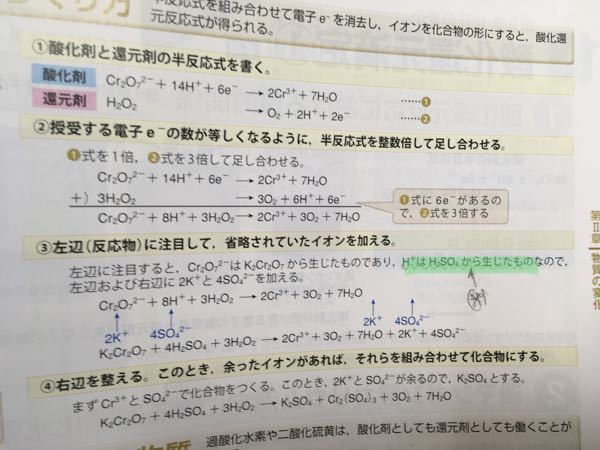 り方
半反応式を組み合わせて電子e⁻を消去し，イオンを化合物の形にすると，酸化還
元反応式が得られる。
①酸化剤と還元剤の半反応式を書く。
酸化剤 Cr₂O₇²⁻ + 14H⁺ + 6e⁻ → 2Cr³⁺ + 7H₂O ……❶
還元剤 H₂O₂ → O₂ + 2H⁺ + 2e⁻ ……❷
②授受する電子e⁻の数が等しくなるように，半反応式を整数倍して足し合わせる。
❶式を1倍，❷式を3倍して足し合わせる。
Cr₂O₇²⁻ + 14H⁺ + 6e⁻ → 2Cr³⁺ + 7H₂O
+) 3H₂O₂ → 3O₂ + 6H⁺ + 6e⁻
Cr₂O₇²⁻ + 8H⁺ + 3H₂O₂ → 2Cr³⁺ + 3O₂ + 7H₂O
❶式に6e⁻があるの
で，❷式を3倍する
③左辺(反応物)に注目して，省略されていたイオンを加える。
左辺に注目すると，Cr₂O₇²⁻はK₂Cr₂O₇から生じたものであり，H⁺はH₂SO₄から生じたものなので，
左辺および右辺に2K⁺と4SO₄²⁻を加える。
Cr₂O₇²⁻ + 8H⁺ + 3H₂O₂ → 2Cr³⁺ + 3O₂ + 7H₂O
2K⁺ 4SO₄²⁻ 2K⁺ 4SO₄²⁻
K₂Cr₂O₇ + 4H₂SO₄ + 3H₂O₂ → 2Cr³⁺ + 3O₂ + 7H₂O + 2K⁺ + 4SO₄²⁻
④右辺を整える。このとき，余ったイオンがあれば，それらを組み合わせて化合物にする。
まずCr³⁺とSO₄²⁻で化合物をつくる。このとき，2K⁺とSO₄²⁻が余るので，K₂SO₄とする。
K₂Cr₂O₇ + 4H₂SO₄ + 3H₂O₂ → K₂SO₄ + Cr₂(SO₄)₃ + 3O₂ + 7H₂O
物質
過酸化水素や二酸化硫黄は，酸化剤としても還元剤としても働くことが
第Ⅱ章
物質の変化